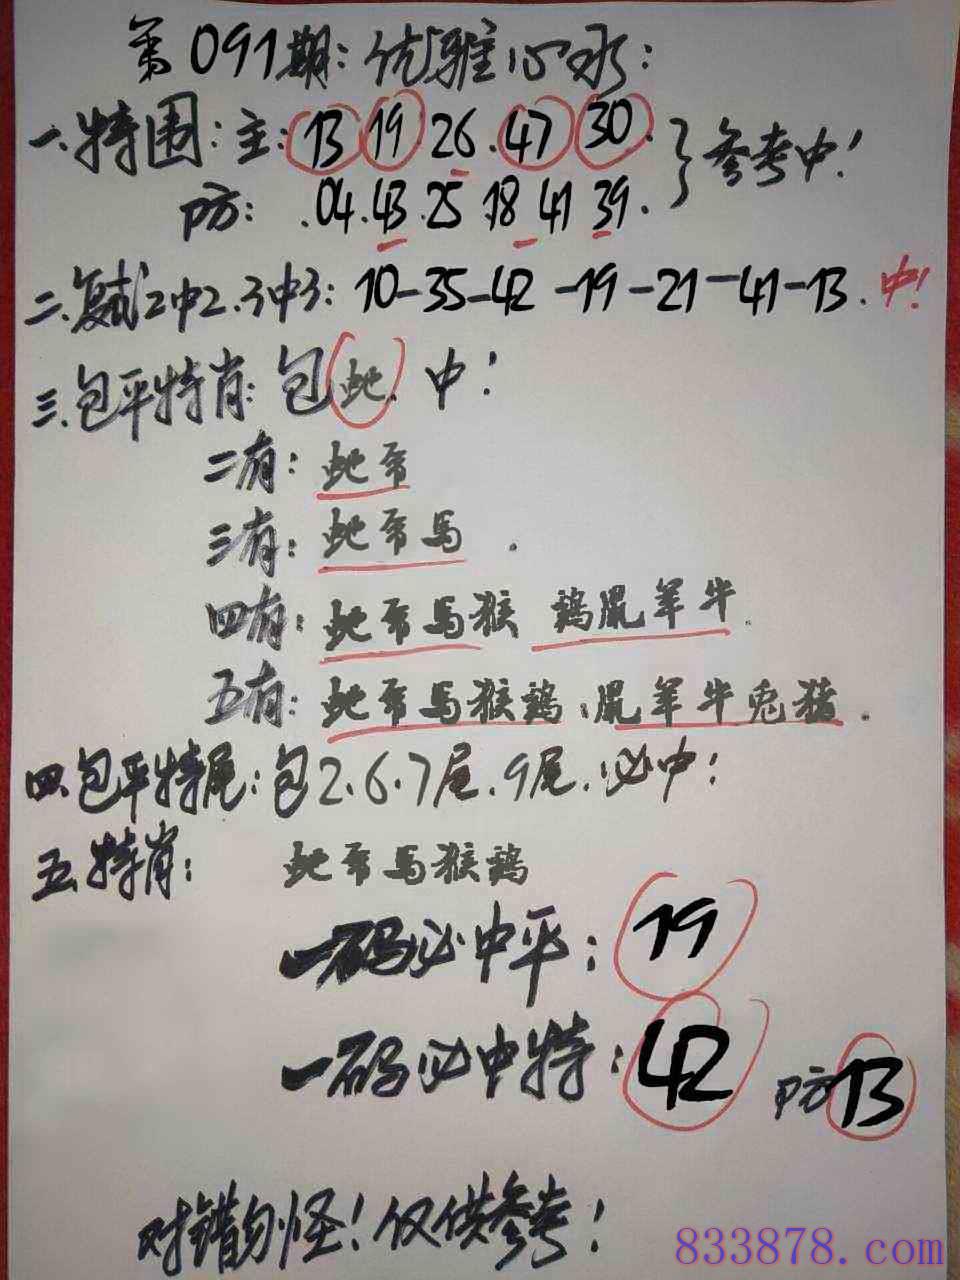 第091期:优雅心水:
一.特围:主:13 19 26.47 30.
防:.04.43.25.18 41 39.
}参考中!
二.复试2中2.3中3:10-35-42-19-21-41-13.中!
三.包平特肖:包蛇.中!
二有:蛇帝
三有:蛇帝马.
四有:蛇帝马猴 鸡鼠羊牛.
五有:蛇帝马猴鸡.鼠羊牛兔猪.
四.包平特尾:包2.6.7尾.9尾.必中!
五.特肖: 蛇帝马猴鸡
一码必中平:19
一码必中特:42 防13
对错勿怪!仅供参考!
833878.com